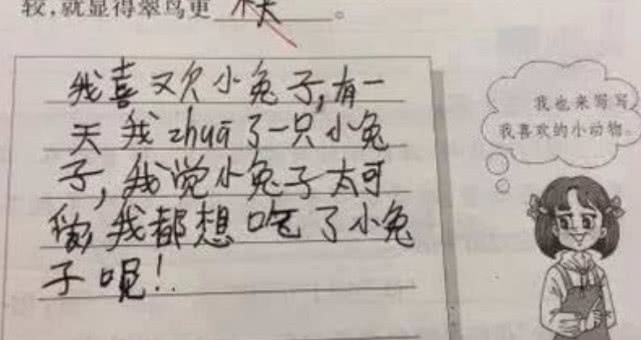 较,就显得翠鸟更
我喜欢小兔子,有一
天我zhuā了一只小兔
子,我觉小兔子太可
我都想吃了小兔
子呢!
我也来写写
我喜欢的小动物。